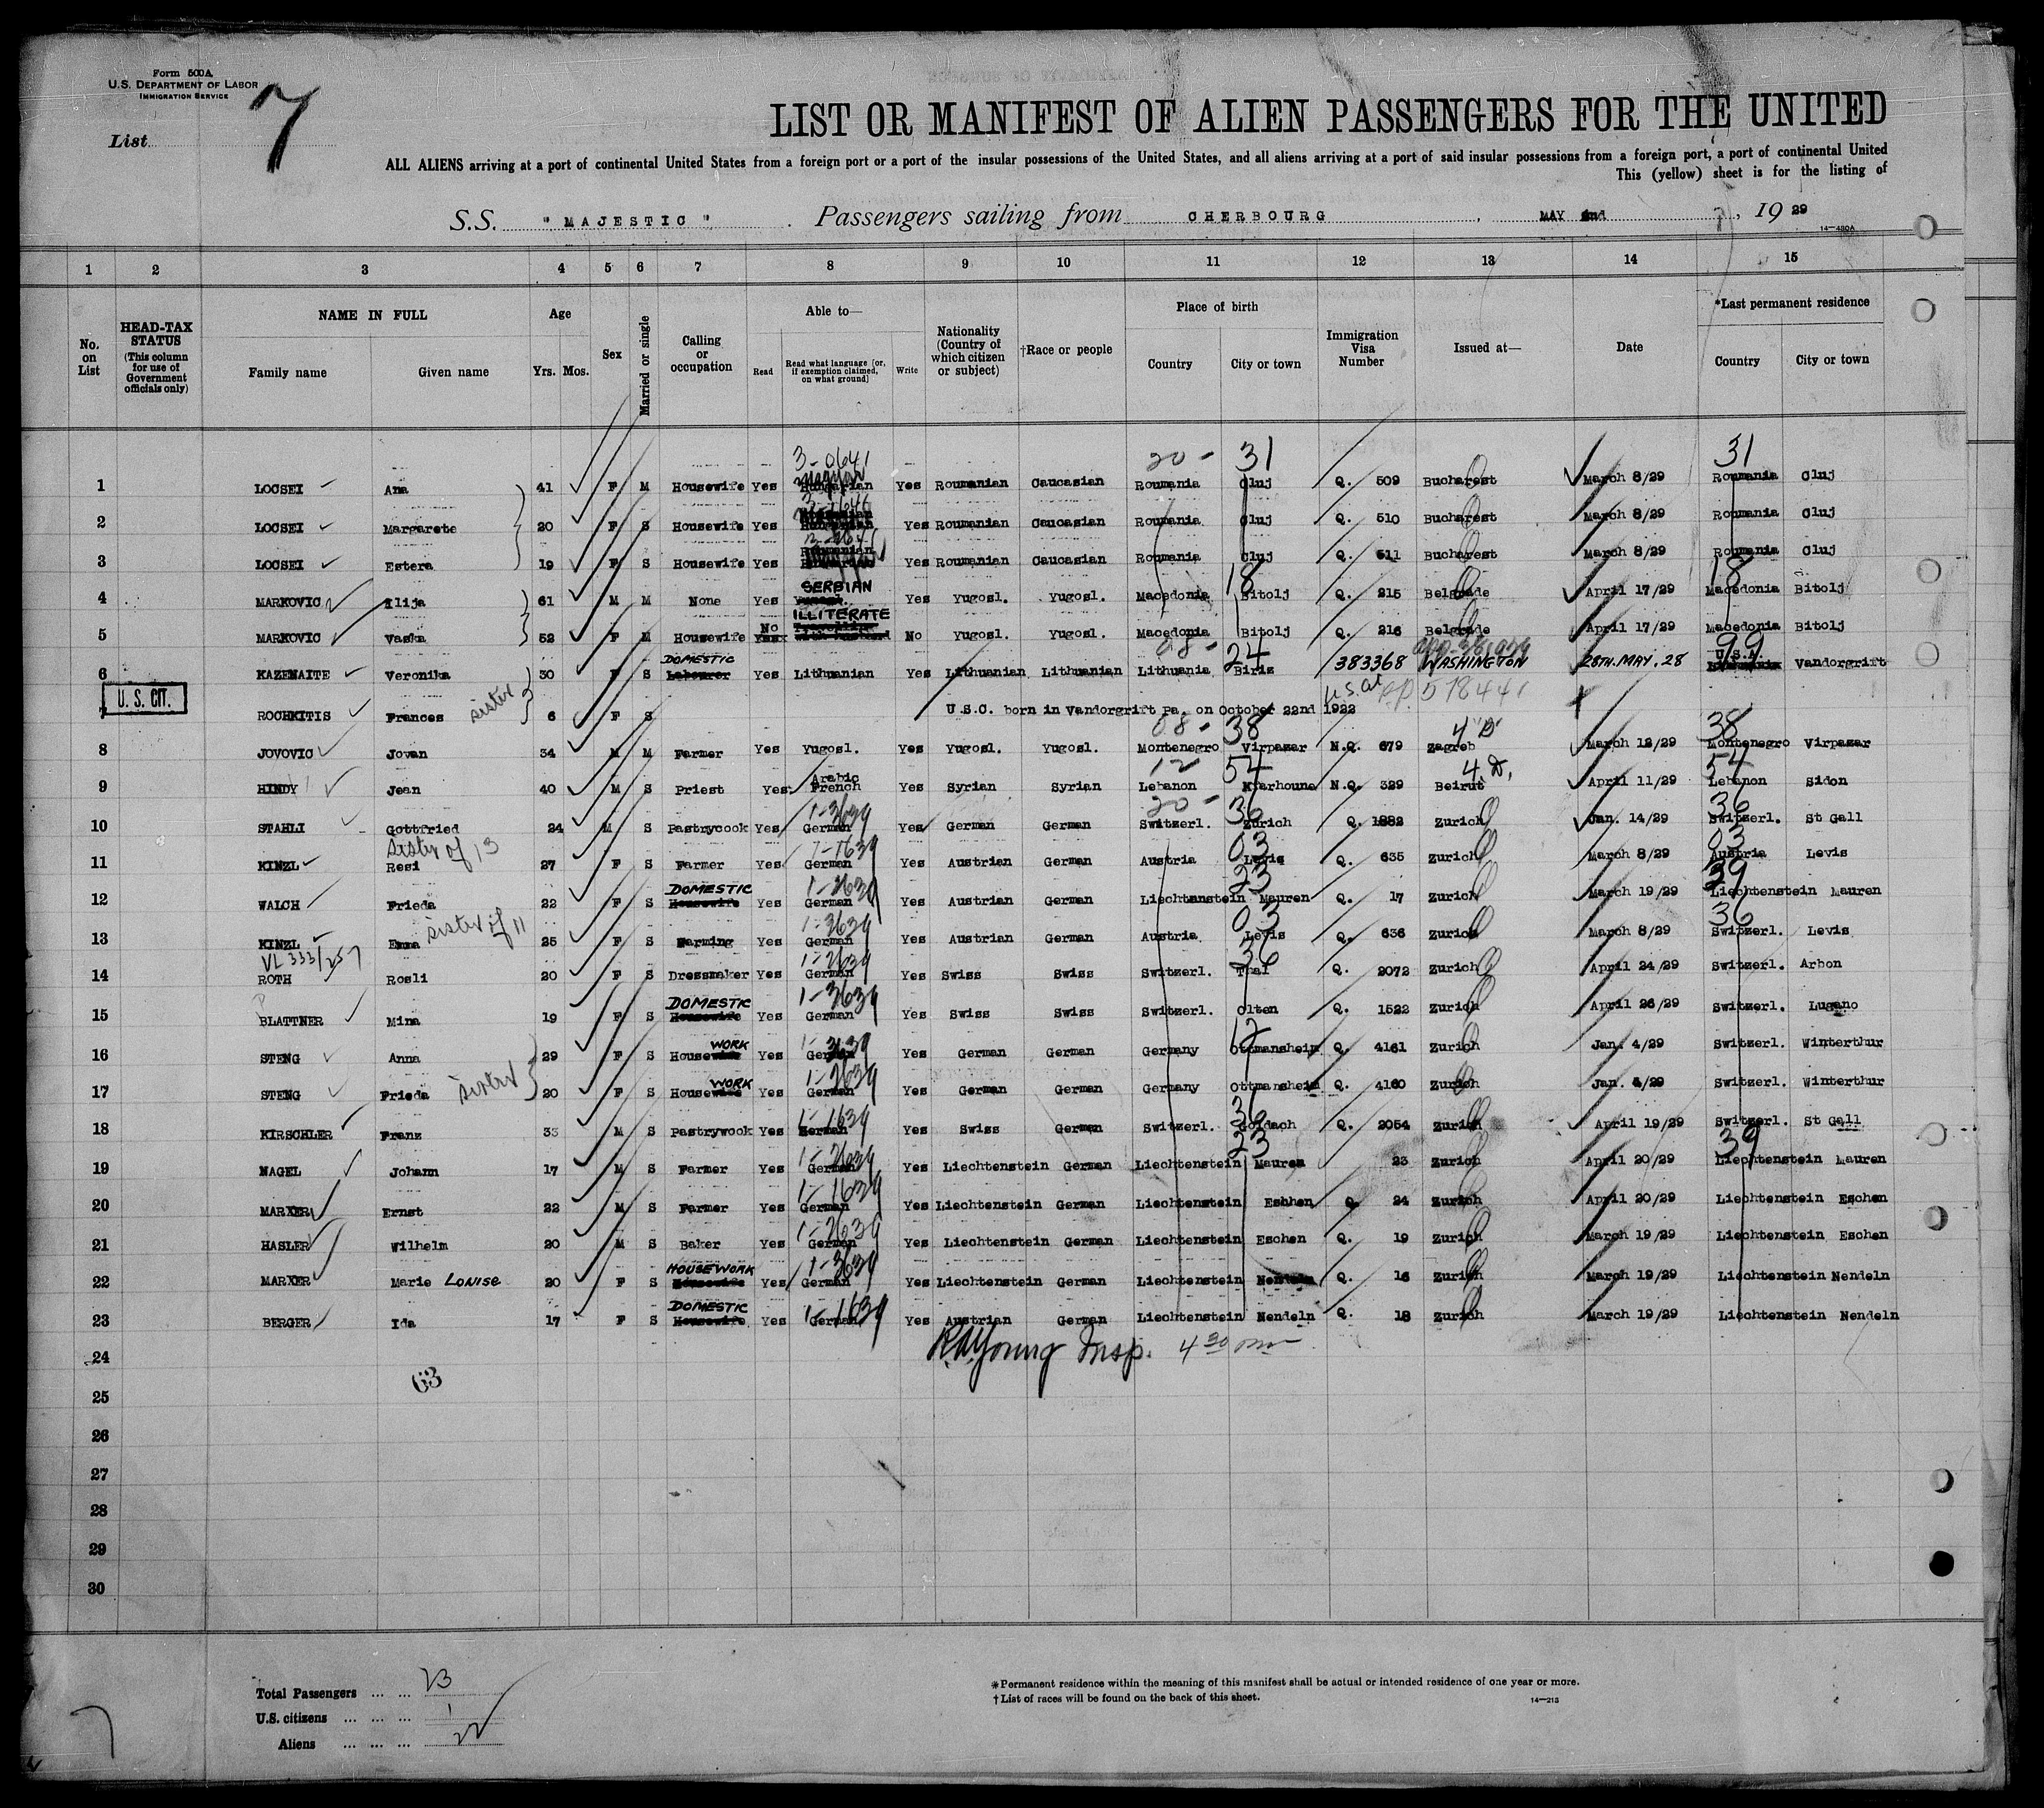 Form 500A
U.S. DEPARTMENT OF LABOR
IMMIGRATION SERVICE
List 7
LIST OR MANIFEST OF ALIEN PASSENGERS FOR THE UNITED
ALL ALIENS arriving at a port of continental United States from a foreign port or a port of the insular possessions of the United States, and all aliens arriving at a port of said insular possessions from a foreign port, a port of continental United
This (yellow) sheet is for the listing of
S.S. "MAJESTIC". Passengers sailing from CHERBOURG, MAY 2nd, 19 29
14—480A
1 2 3 4 5 6 7 8 9 10 11 12 13 14 15
No. on List
HEAD-TAX STATUS (This column for use of Government officials only)
NAME IN FULL Family name Given name
Age Yrs. Mos.
Sex
Married or single
Calling or occupation
Able to— Read Read what language [or, if exemption claimed, on what ground] Write
Nationality (Country of which citizen or subject)
†Race or people
Place of birth Country City or town
Immigration Visa Number
Issued at—
Date
*Last permanent residence Country City or town
3-0641 20- 31 31
1 LOCSEI Ana 41 F M Housewife Yes Magyar Yes Roumanian Caucasian Roumania Cluj Q. 509 Bucharest March 8/29 Roumania Cluj
2 LOCSEI Margarete 20 F S Housewife Yes Yes Roumanian Caucasian Roumania Cluj Q. 510 Bucharest March 8/29 Roumania Cluj
3 LOCSEI Estera 19 F S Housewife Yes Roumanian Yes Roumanian Caucasian Roumania Cluj Q. 511 Bucharest March 8/29 Roumania Cluj
18 18
4 MARKOVIC Ilija 61 M M None Yes SERBIAN Yes Yugosl. Yugosl. Macedonia Bitolj Q. 215 Belgrade April 17/29 Macedonia Bitolj
5 MARKOVIC Vaska 52 F M Housewife No ILLITERATE No Yugosl. Yugosl. Macedonia Bitolj Q. 216 Belgrade April 17/29 Macedonia Bitolj
08- 24 99
6 KAZEMAITE Veronika 30 F S DOMESTIC Labourer Yes Lithuanian Yes Lithuanian Lithuanian Lithuania Biriz 383368 WASHINGTON 28TH.MAY.28 U.S.A. Vandorgrift
U. S. CIT.
7 ROCHKITIS Frances sister 6 F S U.S.C. born in Vandorgrift Pa. on October 22nd 1922 U.S. Cit PP. 578441
08- 38 4"D" 38
8 JOVOVIC Jovan 34 M M Farmer Yes Yugosl. Yes Yugosl. Yugosl. Montenegro Virpazar N.Q. 679 Zagreb March 12/29 Montenegro Virpazar
12 54 4.D. 54
9 HINDY Jean 40 M S Priest Yes Arabic French Yes Syrian Syrian Lebanon Kfarhoune N.Q. 329 Beirut April 11/29 Lebanon Sidon
1-3639 20- 36 36
10 STAHLI Gottfried 24 M S Pastrycook Yes German Yes German German Switzerl. Zurich Q. 1882 Zurich Jan. 14/29 Switzerl. St Gall
sister of 13 1-1639 03 03
11 KINZL Resi 27 F S Farmer Yes German Yes Austrian German Austria Levis Q. 635 Zurich March 8/29 Austria Levis
DOMESTIC 1-2639 23 39
12 WALCH Frieda 22 F S Housewife Yes German Yes Austrian German Liechtanstein Mauren Q. 17 Zurich March 19/29 Liechtenstein Mauren
sister of 11 1-3639 03 36
13 KINZL Emma 25 F S Farming Yes German Yes Austrian German Austria Levis Q. 636 Zurich March 8/29 Switzerl. Levis
VL 333/257 1-2639 36
14 ROTH Rosli 20 F S Dressmaker Yes German Yes Swiss Swiss Switzerl. Thal Q. 2072 Zurich April 24/29 Switzerl. Arbon
DOMESTIC 1-3639
15 BLATTNER Mina 19 F S Housewife Yes German Yes Swiss Swiss Switzerl. Olten Q. 1522 Zurich April 26/29 Switzerl. Lugano
WORK 1-3639 12
16 STENG Anna 29 F S Housewife Yes German Yes German German Germany Ottmansheim Q. 4161 Zurich Jan. 4/29 Switzerl. Winterthur
WORK 1-2639
17 STENG Frieda sister 20 F S Housewife Yes German Yes German German Germany Ottmansheim Q. 4160 Zurich Jan. 4/29 Switzerl. Winterthur
1-1639 36
18 KIRSCHLER Franz 33 M S Pastrywook Yes German Yes Swiss German Switzerl. Goldach Q. 2054 Zurich April 19/29 Switzerl. St Gall
1-2639 23 39
19 NAGEL Johann 17 M S Farmer Yes German Yes Liechtenstein German Liechtenstein Mauren 23 Zurich April 20/29 Liechtenstein Mauren
1-1639
20 MARXER Ernst 22 M S Farmer Yes German Yes Liechtenstein German Liechtenstein Eshhen Q. 24 Zurich April 20/29 Liechtenstein Eschen
1-2639
21 HASLER Wilhelm 20 M S Baker Yes German Yes Liechtenstein German Liechtenstein Eschen Q. 19 Zurich March 19/29 Liechtenstein Eschen
HOUSEWORK 1-3639
22 MARXER Marie Louise 20 F S Housewife Yes German Yes Liechtenstein German Liechtenstein Nendeln Q. 16 Zurich March 19/29 Liechtenstein Nendeln
DOMESTIC 1-1639
23 BERGER Ida 17 F S Housewife Yes German Yes Austrian German Liechtenstein Nendeln Q. 18 Zurich March 19/29 Liechtenstein Nendeln
24 R.A. Young Insp. 4 30 pm
63
25
26
27
28
29
30
Total Passengers ... ... 23
U.S. citizens ... ... ... 1
Aliens ... ... ... 22
*Permanent residence within the meaning of this manifest shall be actual or intended residence of one year or more.
†List of races will be found on the back of this sheet.
14—213
7